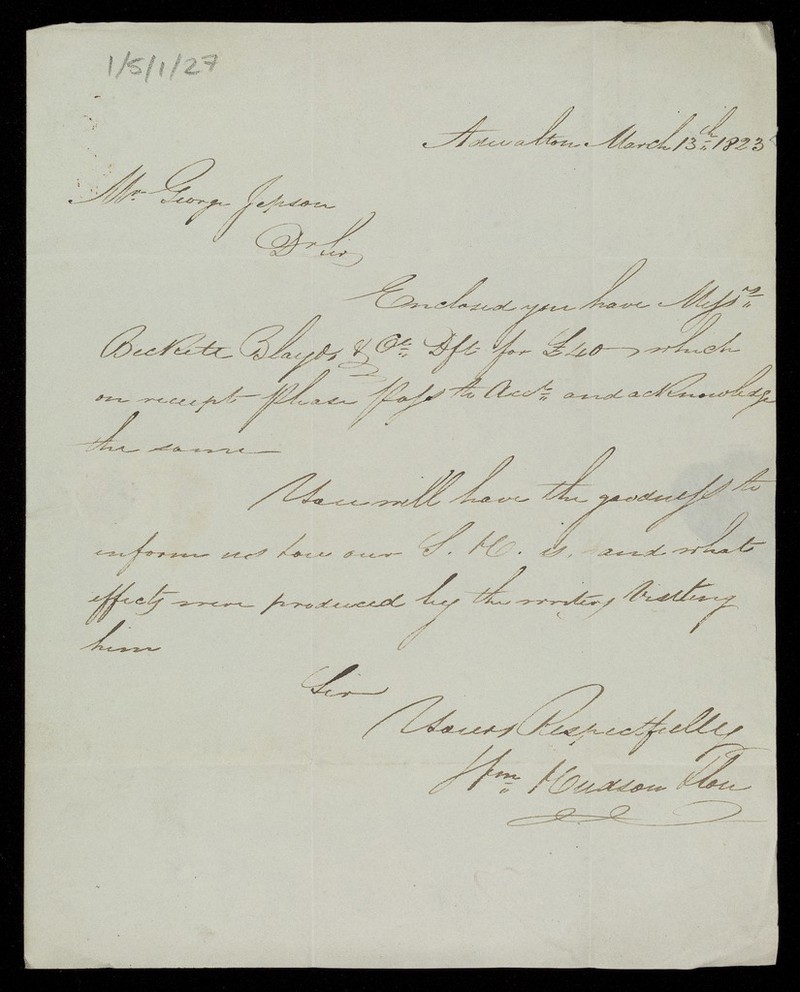 1/5/1/27
March 13th 1823
Mr. George Jepson
Dr Sir
Enclosed you have Messrs
Beckett Blayds & Co Dft for £40 which
on receipt please pass to Acct and acknowledge
the same
You will have the goodness to
inform us how our S. H. is, and what
effects were produced by the writers Visiting
him
Sir
Yours Respectfully
Wm Hudson